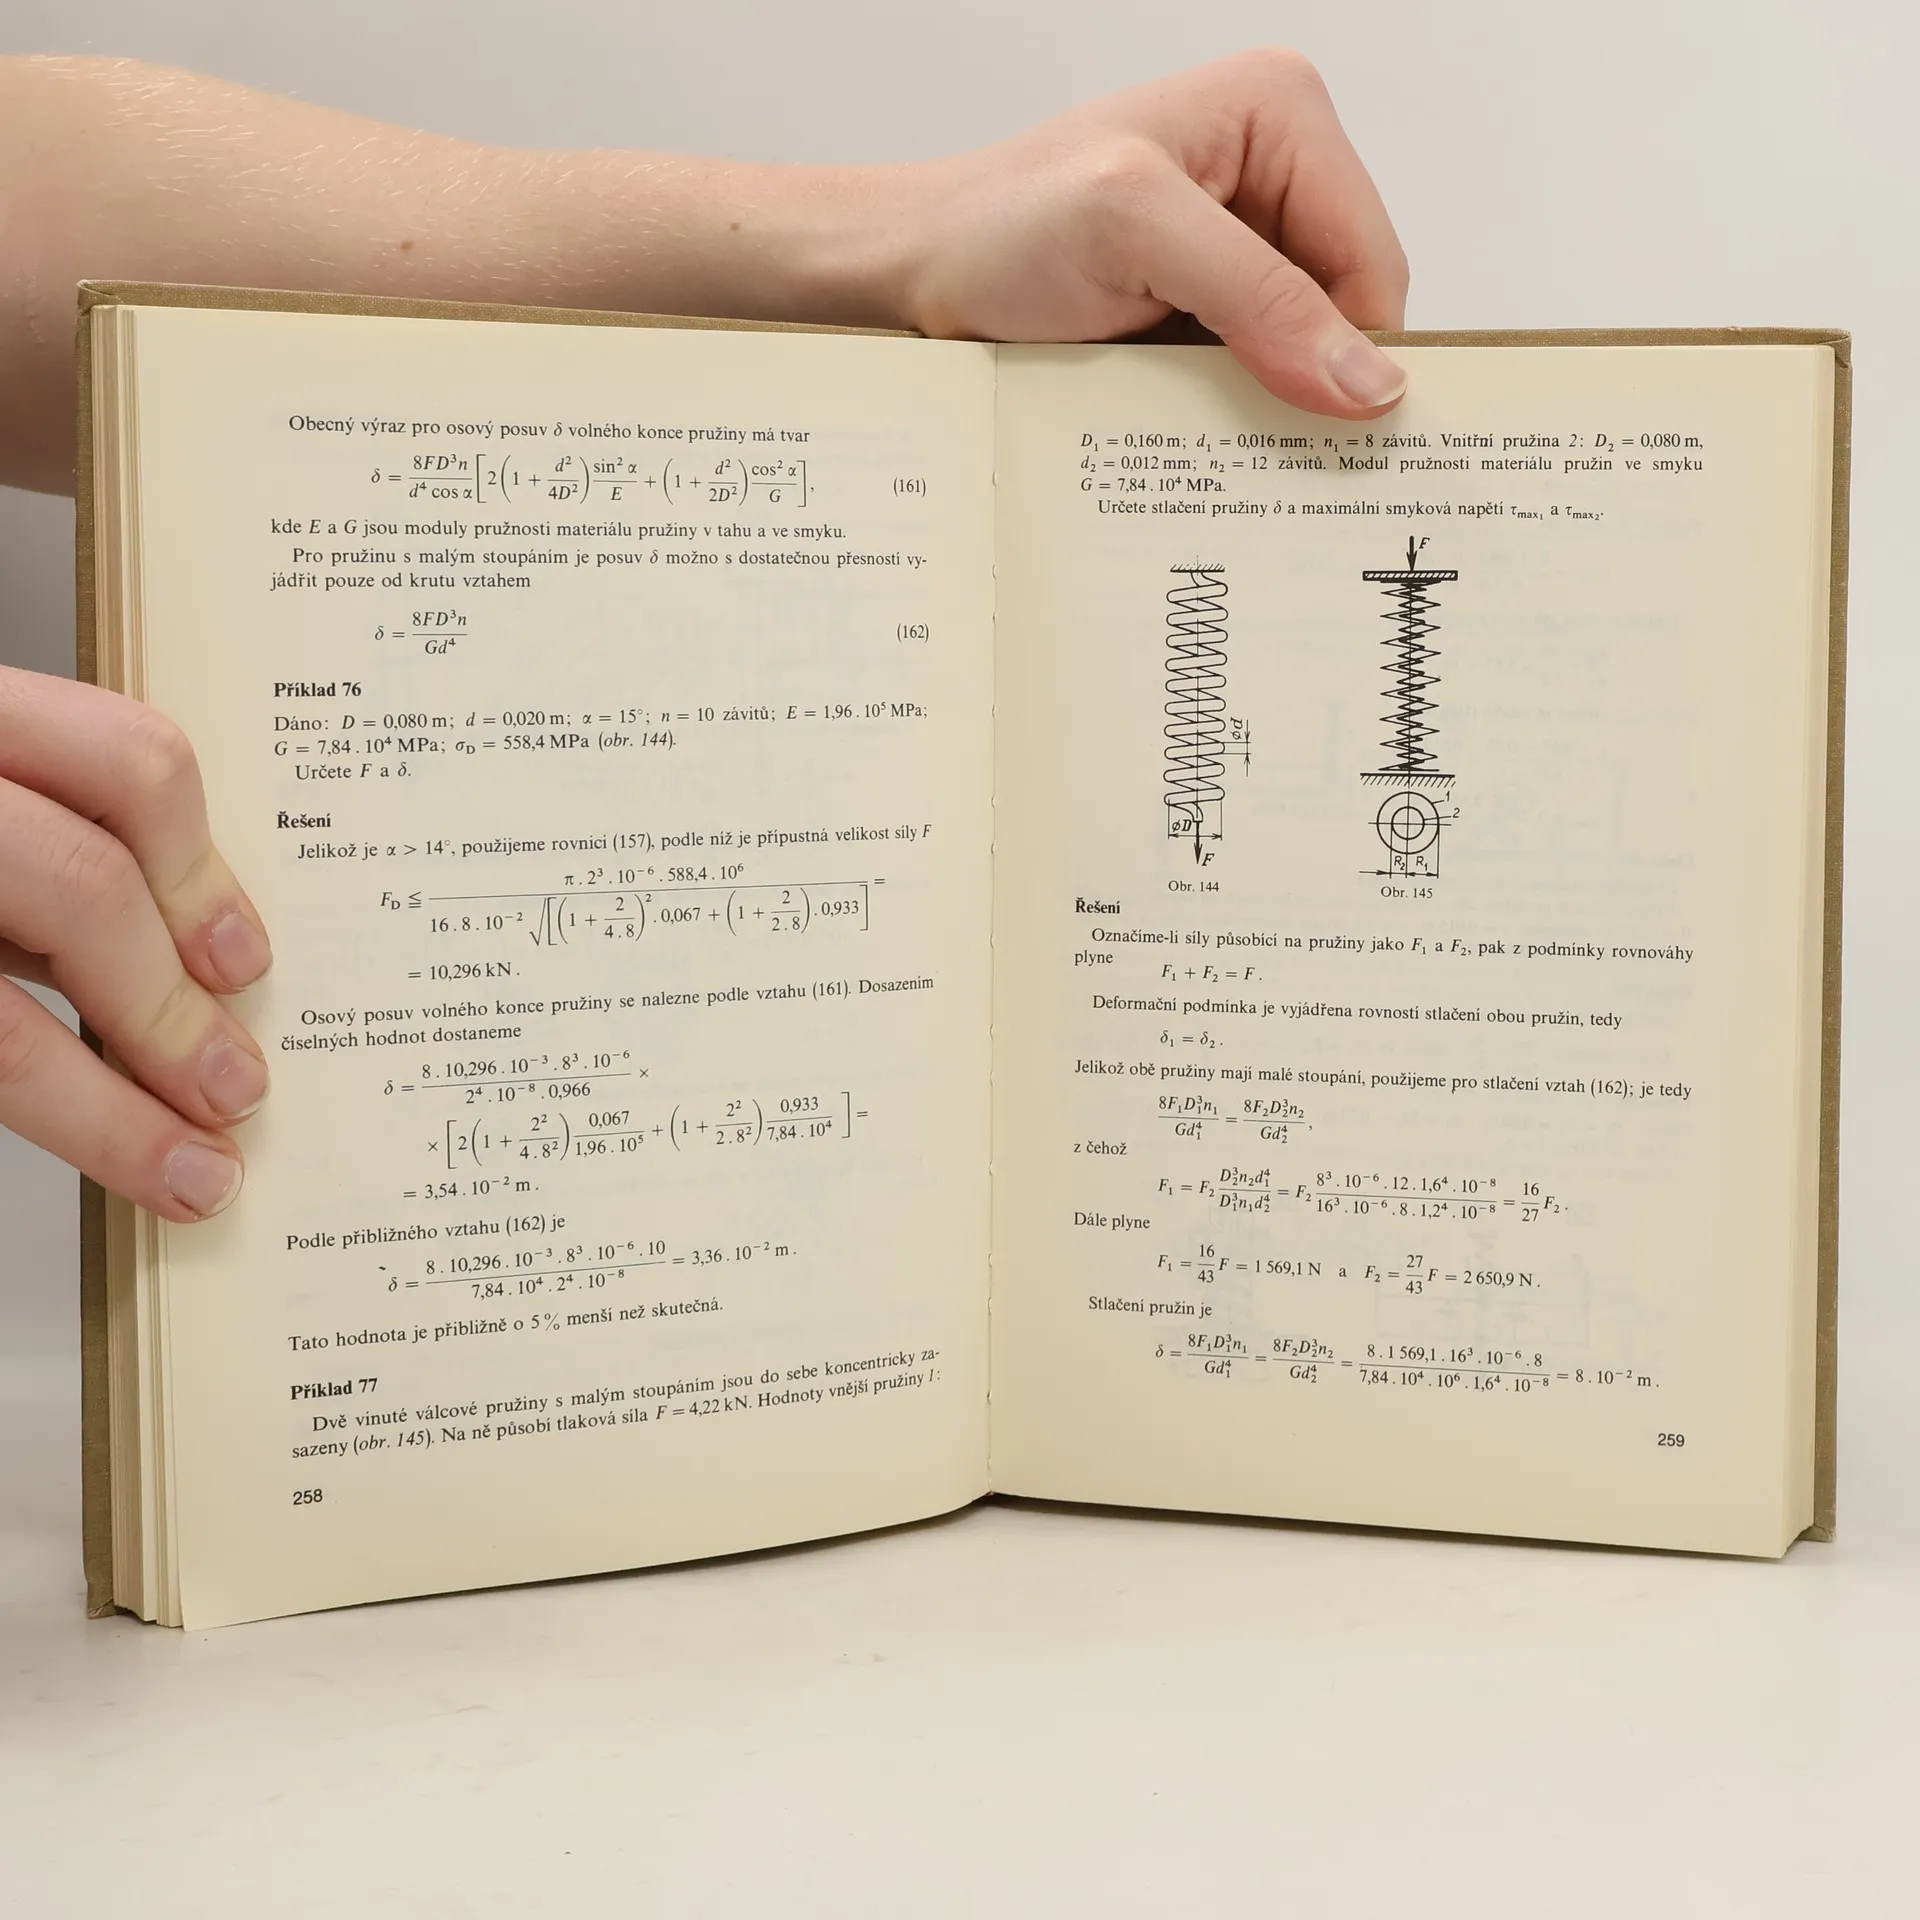 Obecný výraz pro osový posuv δ volného konce pružiny má tvar
δ = 8FD³n / d⁴ cos α [2(1 + d²/4D²) sin² α / E + (1 + d²/2D²) cos² α / G], (161)
kde E a G jsou moduly pružnosti materiálu pružiny v tahu a ve smyku.
Pro pružinu s malým stoupáním je posuv δ možno s dostatečnou přesností vy-
jádřit pouze od krutu vztahem
δ = 8FD³n / Gd⁴ (162)
Příklad 76
Dáno: D = 0,080 m; d = 0,020 m; α = 15°; n = 10 závitů; E = 1,96 . 10⁵ MPa;
G = 7,84 . 10⁴ MPa; σD = 558,4 MPa (obr. 144).
Určete F a δ.
Řešení
Jelikož je α > 14°, použijeme rovnici (157), podle níž je přípustná velikost síly F
FD ≦ π . 2³ . 10⁻⁶ . 588,4 . 10⁶ / 16 . 8 . 10⁻² √[(1 + 2/4 . 8)² . 0,067 + (1 + 2/2 . 8) . 0,933] =
= 10,296 kN .
Osový posuv volného konce pružiny se nalezne podle vztahu (161). Dosazením
číselných hodnot dostaneme
δ = 8 . 10,296 . 10⁻³ . 8³ . 10⁻⁶ / 2⁴ . 10⁻⁸ . 0,966 ×
× [2(1 + 2²/4 . 8²) 0,067 / 1,96 . 10⁵ + (1 + 2²/2 . 8²) 0,933 / 7,84 . 10⁴] =
= 3,54 . 10⁻² m .
Podle přibližného vztahu (162) je
δ = 8 . 10,296 . 10⁻³ . 8³ . 10⁻⁶ . 10 / 7,84 . 10⁴ . 2⁴ . 10⁻⁸ = 3,36 . 10⁻² m .
Tato hodnota je přibližně o 5 % menší než skutečná.
Příklad 77
Dvě vinuté válcové pružiny s malým stoupáním jsou do sebe koncentricky za-
sazeny (obr. 145). Na ně působí tlaková síla F = 4,22 kN. Hodnoty vnější pružiny 1:
258
D₁ = 0,160 m; d₁ = 0,016 mm; n₁ = 8 závitů. Vnitřní pružina 2: D₂ = 0,080 m,
d₂ = 0,012 mm; n₂ = 12 závitů. Modul pružnosti materiálu pružin ve smyku
G = 7,84 . 10⁴ MPa.
Určete stlačení pružiny δ a maximální smyková napětí τmax₁ a τmax₂.
ød
øD
F
Obr. 144
F
1
2
R₂ R₁
Obr. 145
Řešení
Označíme-li síly působící na pružiny jako F₁ a F₂, pak z podmínky rovnováhy
plyne
F₁ + F₂ = F .
Deformační podmínka je vyjádřena rovností stlačení obou pružin, tedy
δ₁ = δ₂ .
Jelikož obě pružiny mají malé stoupání, použijeme pro stlačení vztah (162); je tedy
8F₁D₁³n₁ / Gd₁⁴ = 8F₂D₂³n₂ / Gd₂⁴ ,
z čehož
F₁ = F₂ D₂³n₂d₁⁴ / D₁³n₁d₂⁴ = F₂ 8³ . 10⁻⁶ . 12 . 1,6⁴ . 10⁻⁸ / 16³ . 10⁻⁶ . 8 . 1,2⁴ . 10⁻⁸ = 16/27 F₂ .
Dále plyne
F₁ = 16/43 F = 1 569,1 N a F₂ = 27/43 F = 2 650,9 N .
Stlačení pružin je
δ = 8F₁D₁³n₁ / Gd₁⁴ = 8F₂D₂³n₂ / Gd₂⁴ = 8 . 1 569,1 . 16³ . 10⁻⁶ . 8 / 7,84 . 10⁴ . 10⁶ . 1,6⁴ . 10⁻⁸ = 8 . 10⁻² m .
259